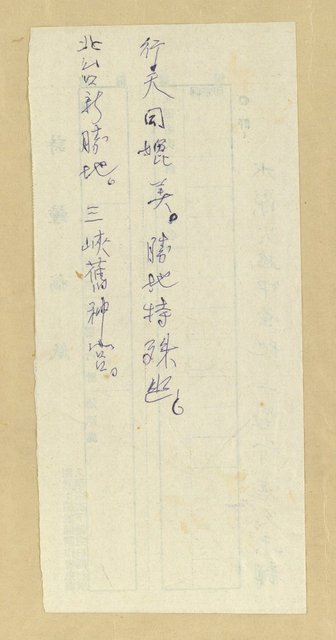 行天同媲美。勝地特殊。
北台新勝地。三峽舊神宮。